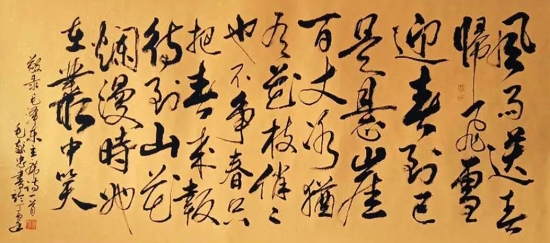 風雨送春
歸飛雪
迎春到已
是懸崖
百丈冰猶
有花枝俏〻
也不争春只
把春來報
待到山花
爛漫時她
在叢中笑
敬录毛澤东主席詩一首
書於丁酉